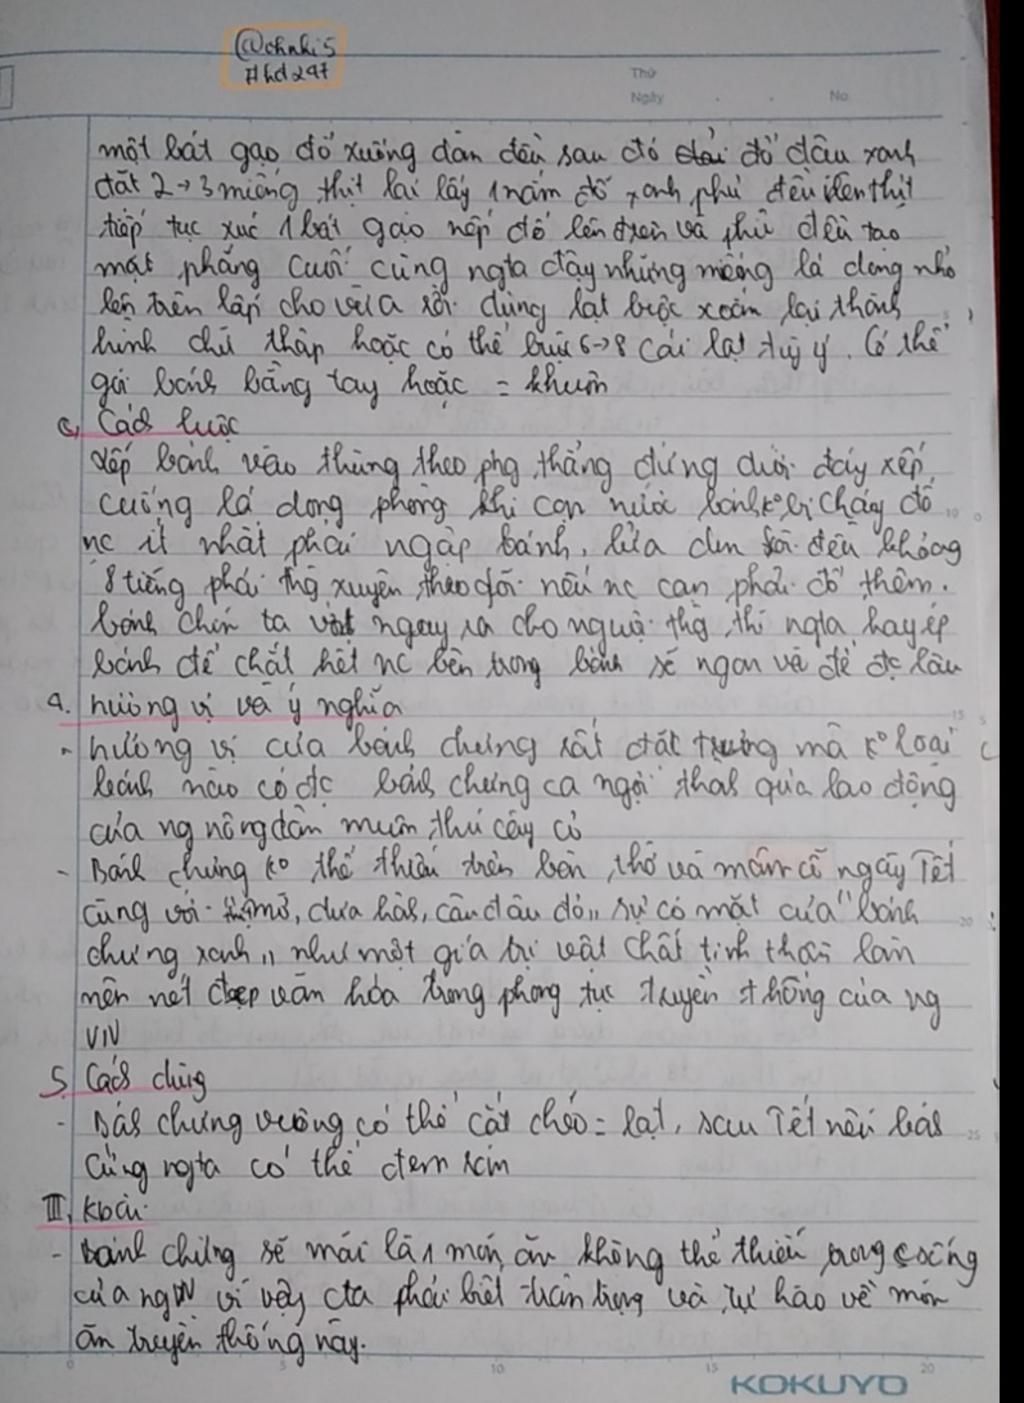 @chnhi5
#hd247
Thứ
Ngày . . No
một bát gạo đổ xuống dàn đều sau đó đổ đậu xanh
đặt 2→3 miếng thịt lại lấy 1 nắm đỗ xanh phủ đều lên thịt
tiếp tục xúc 1 bát gạo nếp đổ lên trên và phủ đều tạo
mặt phẳng cuối cùng ngta đậy những miếng lá dong nhỏ
lên trên lấp cho vừa rồi dùng lạt buộc xoắn lại thành
hình chữ thập hoặc có thể buộc 6→8 cái lạt tuỳ ý. Có thể
gói bánh bằng tay hoặc = khuôn
c, Cách luộc
Xếp bánh vào thùng theo phg thẳng đứng dưới đáy xếp
cuống lá dong phòng khi cạn nước bánh k° bị cháy đổ
nc ít nhất phải ngập bánh, lửa đun đều khoảng
8 tiếng phải thg xuyên theo dõi nếu nc cạn phải đổ thêm.
bánh chín ta vớt ngay ra cho nguội thg thì ngta hay ép
bánh để chắt hết nc bên trong bánh sẽ ngon và để đc lâu
4. hương vị và ý nghĩa
- hương vị của bánh chưng rất đặc trưng mà k° loại
bánh nào có đc bánh chưng ca ngợi thah quả lao động
của ng nông dân muôn thú cây cỏ
- Bánh chưng k° thể thiếu trên bàn thờ và mâm cỗ ngày Tết
cùng với mỡ, dưa hàh, câu đối đỏ,, sự có mặt của "bánh
chưng xanh,, như một giá trị vật chất tinh thần làm
nên nét đẹp văn hóa trong phong tục truyền thống của ng
VN
5. Cách dùng
- Báh chưng vuông có thể cắt chéo = lạt, sau Tết nếu báh
cứng ngta có thể đem rán
III, Kbài
- Bánh chưng sẽ mãi là 1 món ăn không thể thiếu trong csống
của ng VN vì vậy cta phải biết trân trọng và tự hào về món
ăn truyền thống này.
0 5 10 15 20
KOKUYO